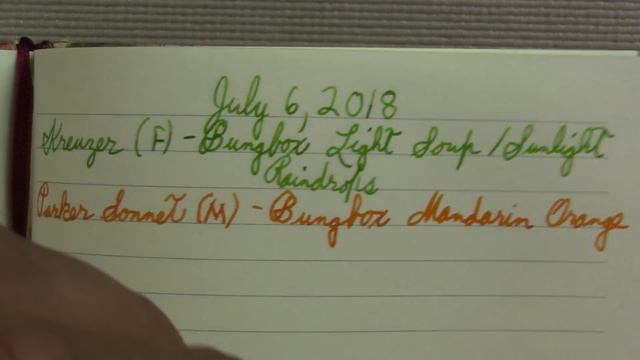 July 6, 2018
Kreuzer (F) - Bungbox Light Soup / Sunlight
Raindrops
Parker Sonnet (M) - Bungbox Mandarin Orange